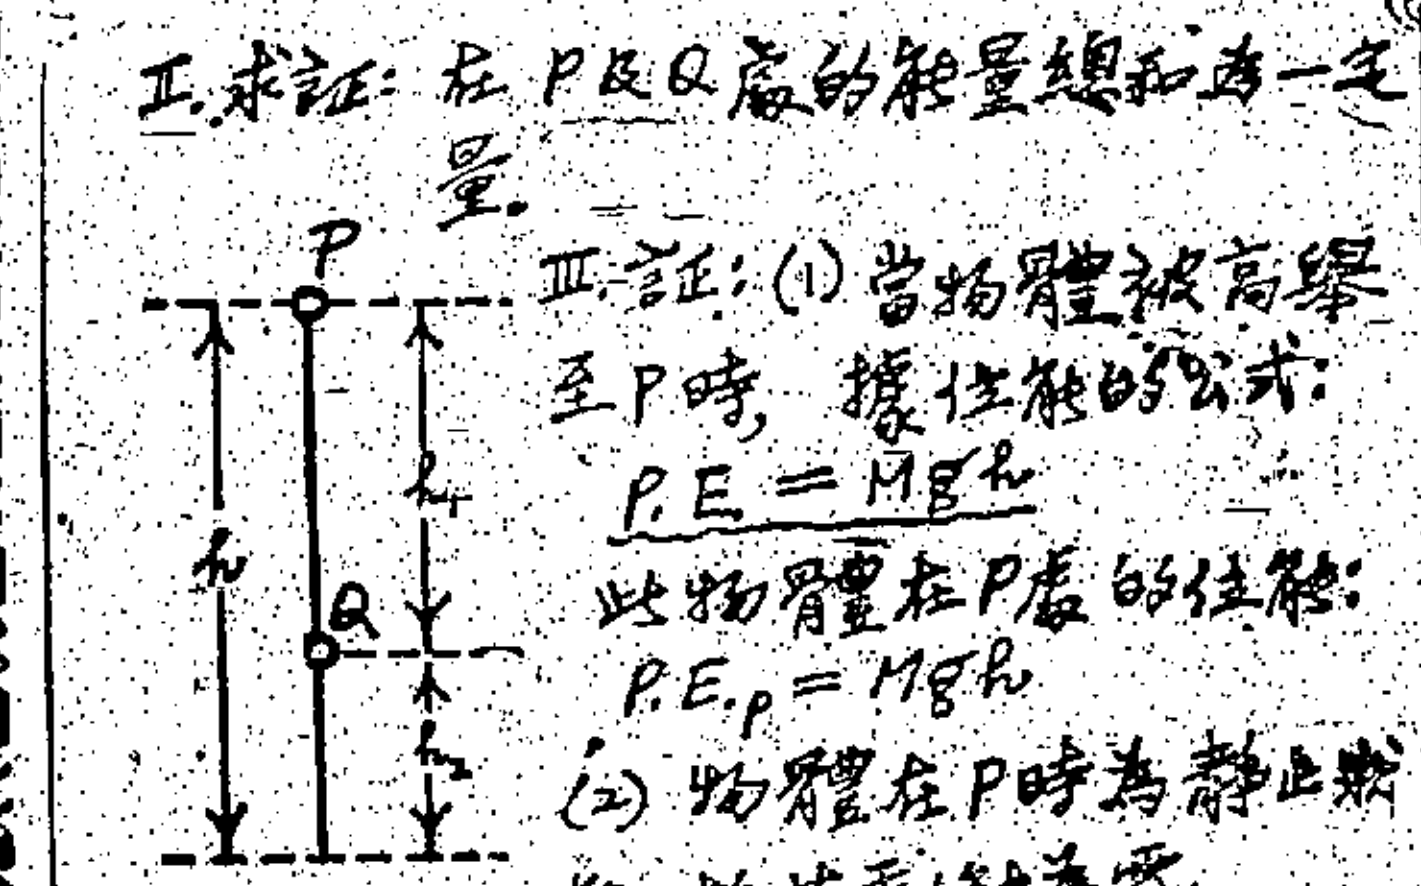 II. 求証: 在 P 及 Q 處的能量總和為一定
量.
P
III. 証: (1) 當物體被高舉
至 P 時, 據位能的公式:
h₁
P.E. = Mgh
h
此物體在 P 處的位能:
Q
P.E.ₚ = Mgh
h₂
(2) 物體在 P 時為靜止狀